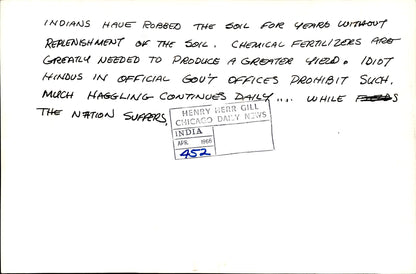 INDIANS HAVE ROBBED THE SOIL FOR YEARS WITHOUT
REPLENISHMENT OF THE SOIL. CHEMICAL FERTILIZERS ARE
GREATLY NEEDED TO PRODUCE A GREATER YIELD. IDIOT
HINDUS IN OFFICIAL GOV'T OFFICES PROHIBIT SUCH.
MUCH HAGGLING CONTINUES DAILY.... WHILE
THE NATION SUFFERS.
HENRY HERR GILL
CHICAGO DAILY NEWS
INDIA
APR 1966
452